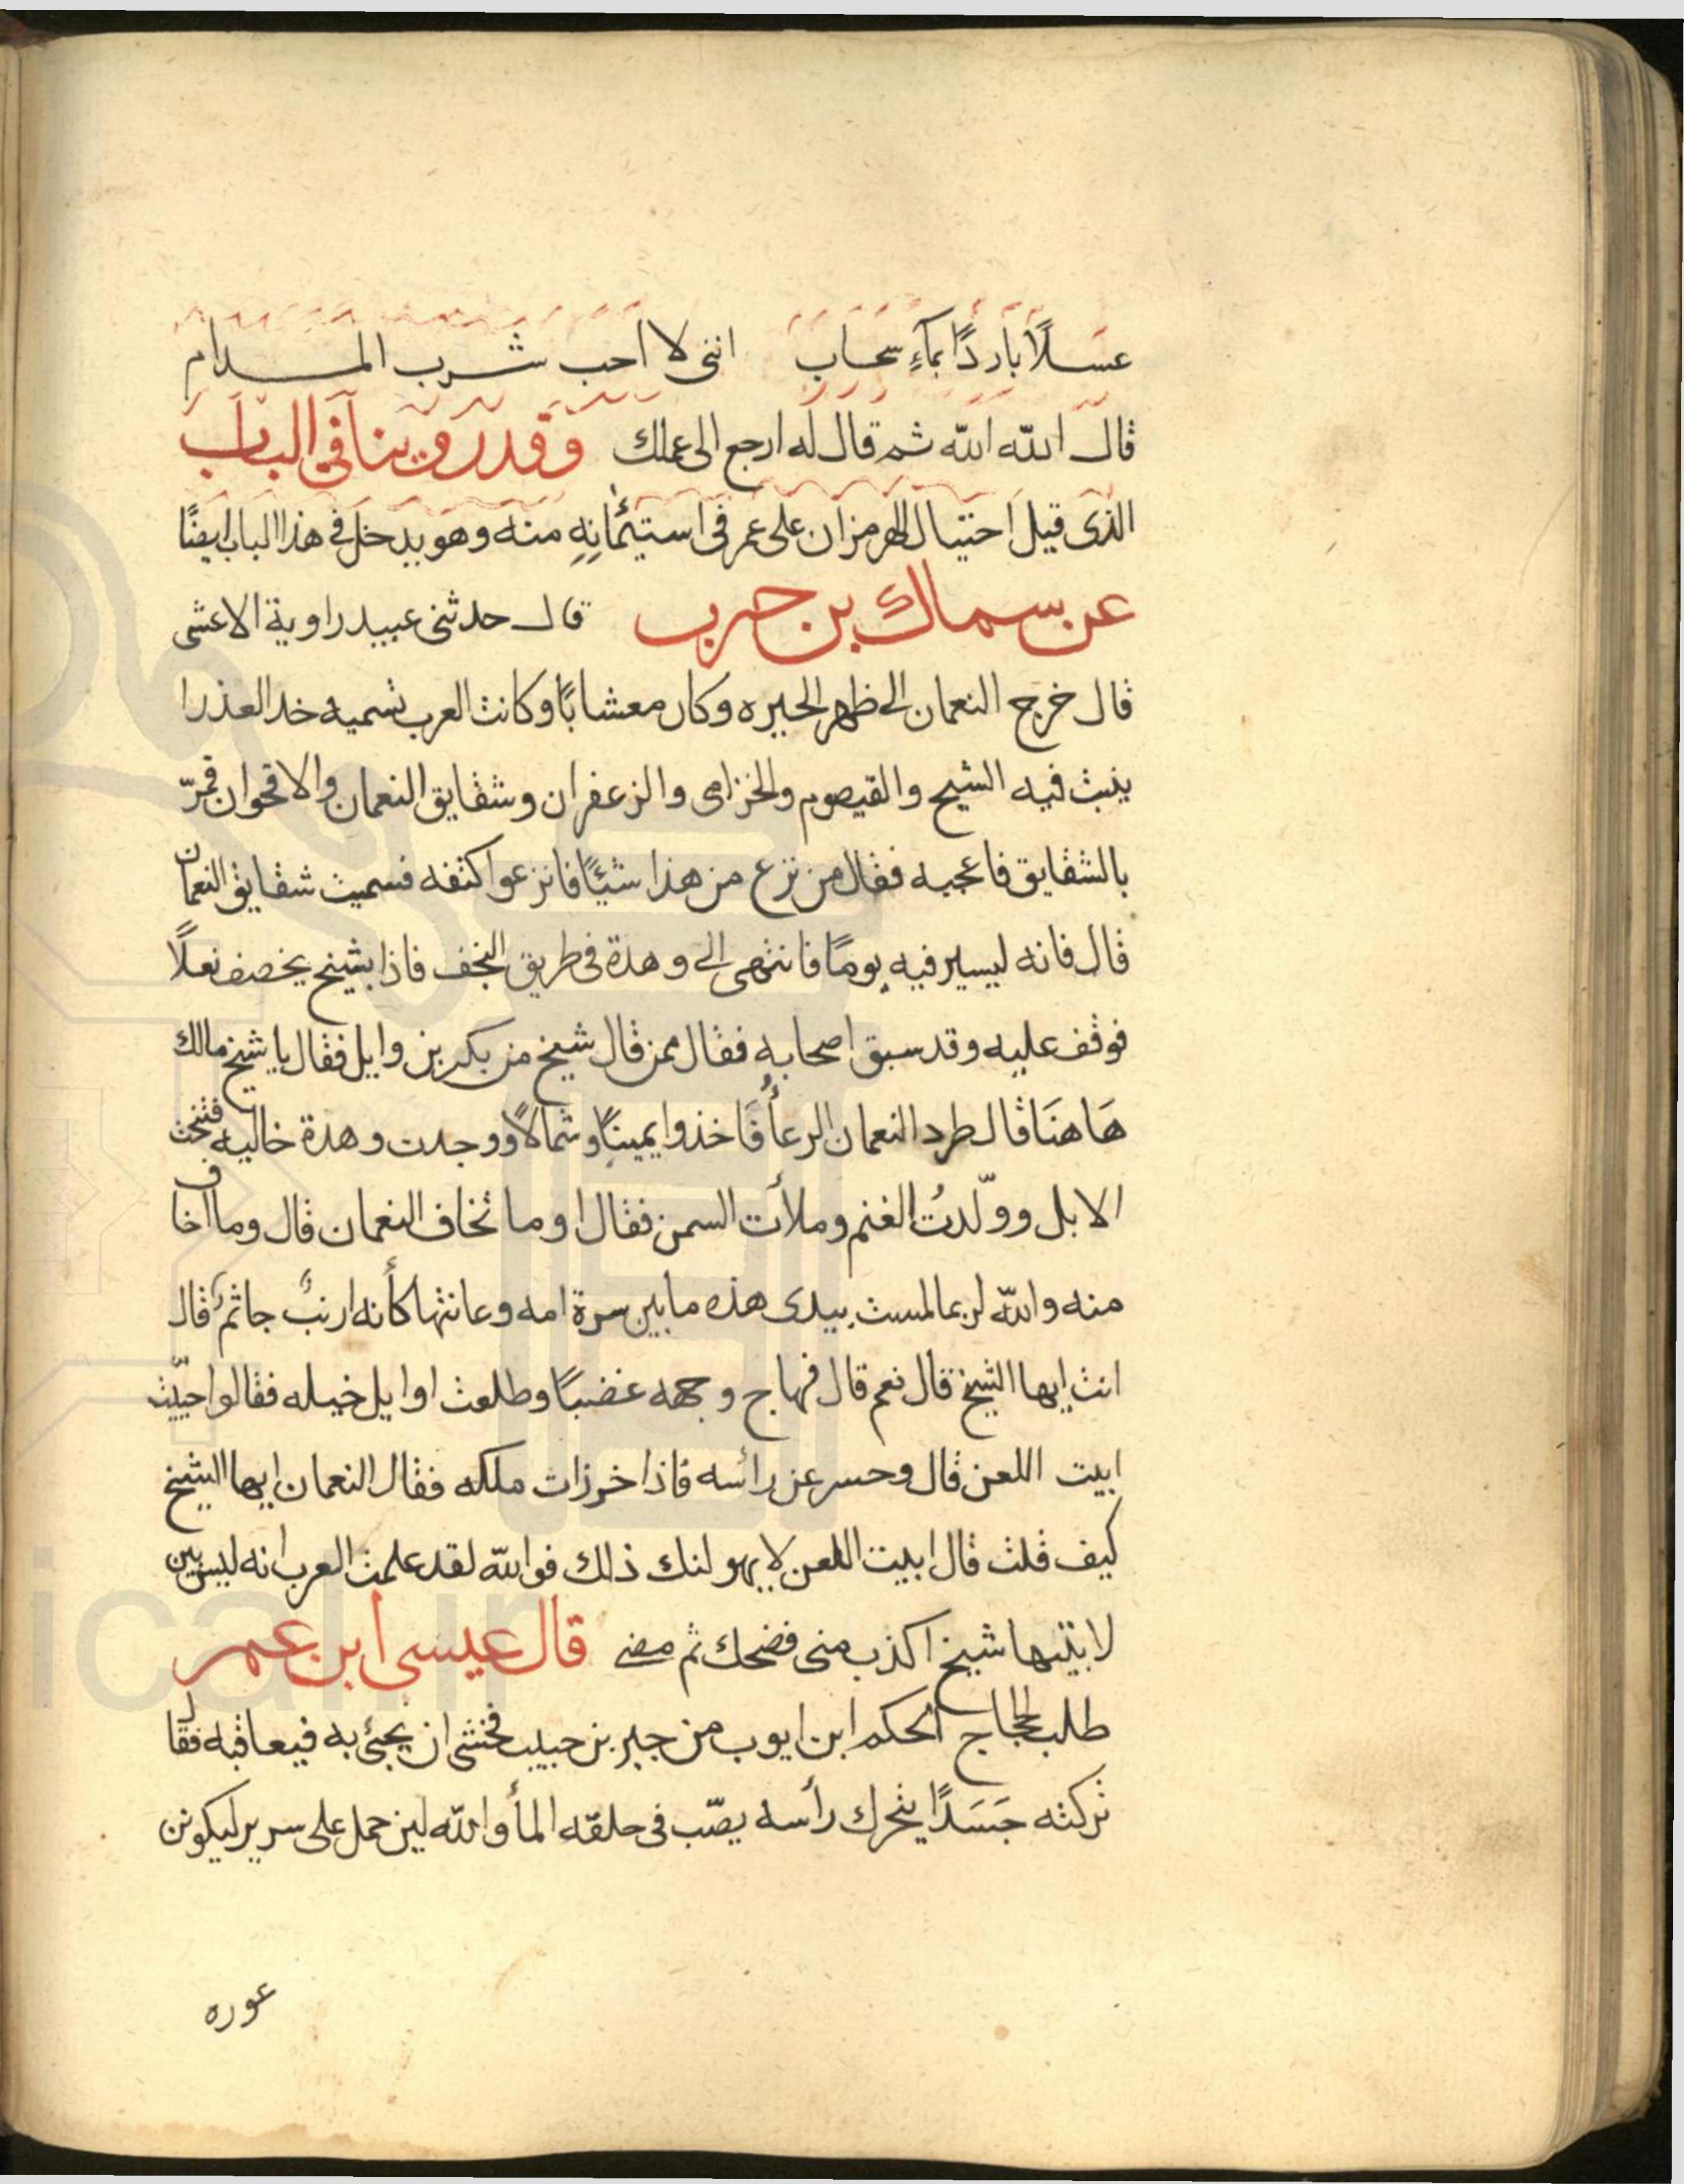 عسلًا باردًا بماءٍ سحاب اننى لا احب شرب المدام
قال الله الله ثم قال له ارجع الى عملك وقد روينا فى الباب
الذى قيل احتيال الهرمزان على عمر فى استيئمانه منه وهو يدخل فى هذا الباب ايضًا
عن سماك بن حرب قال حدثنى عبيد راوية الاعشى
قال خرج النعمان الى ظهر الحيره وكان معشابًا وكانت العرب تسميه خد العذرا
ينبت فيه الشيح والقيصوم والخزامى والزعفران وشقايق النعمان والاقحوان فمرّ
بالشقايق فاعجبه فقال من نزع من هذا شيئًا فانزعوا كتفه فسميت شقايق النعمان
قال فانه ليسير فيه يومًا فانتهى الى وهدة فى طريق النجف فاذا بشيخ يخصف نعلًا
فوقف عليه وقد سبق اصحابه فقال ممن قال شيخ من بكر بن وايل فقال يا شيخ مالك
هَاهنَا قال طرد النعمان الرعأُ فَاخذوا يمينًا وشمالًا ووجدت وهدة خاليه فنتجت
الابل وولّدتُ الغنم وملأت السمن فقال اوما تخاف النعمان قال وما اخاف
منه والله لربما لمست بيدى هذه ما بين سرة امه وعانتها كأنه ارنبٌ جاثم قال
انت ايها الشيخ قال نعم قال فهاج وجهه غضبًا وطلعت اوايل خيله فقالوا حيّيت
ابيت اللعن قال وحسر عن رأسه فاذا خرزات ملكه فقال النعمان ايها الشيخ
كيف قلت قال ابيت اللعن لا يهولنك ذلك فوالله لقد علمت العرب انه ليس بين
لابتيها شيخ اكذب منى فضحك ثم مضى قال عيسى ابن عمر
طلب الحجاج الحكم ابن ايوب من جبر بن حبيب فخشى ان يجئ به فيعاقبه فقال
تركته جَسَدًا يتحرك رأسه يصّب فى حلقه المأ والله لين حمل على سرير ليكونن
عوره